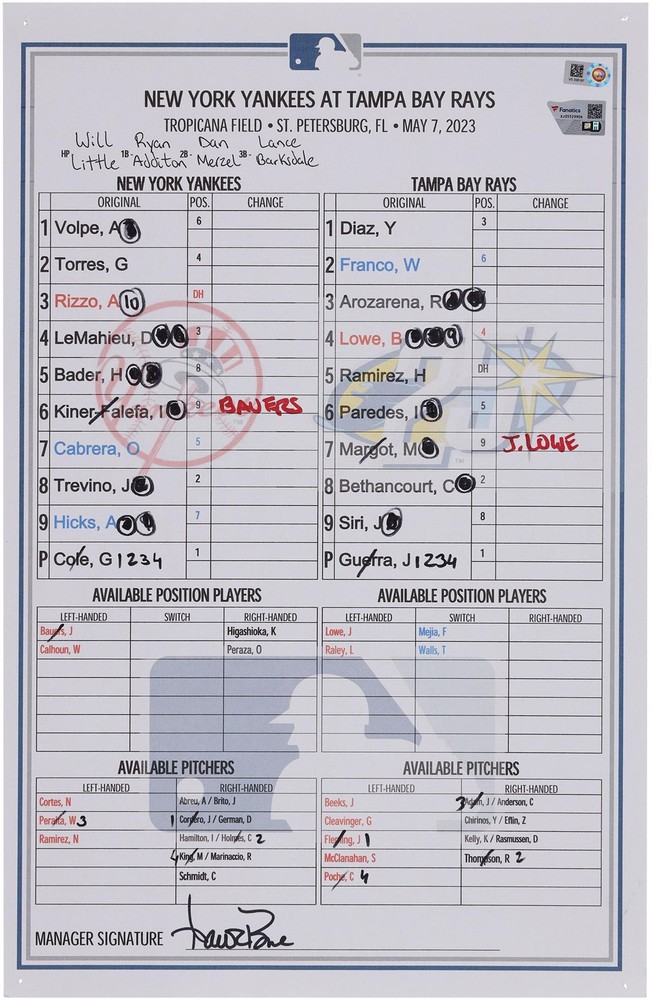 NEW YORK YANKEES AT TAMPA BAY RAYS
TROPICANA FIELD • ST. PETERSBURG, FL • MAY 7, 2023
Will Ryan Dan Lance
HP Little 1B- Additon 2B- Merzel 3B- Barksdale
NEW YORK YANKEES
ORIGINAL POS. CHANGE
1 Volpe, A 6
2 Torres, G 4
3 Rizzo, A 10 DH
4 LeMahieu, D 3
5 Bader, H 8
6 Kiner-Falefa, I 9 BAUERS
7 Cabrera, O 5
8 Trevino, J 2
9 Hicks, A 7
P Cole, G 1234 1
TAMPA BAY RAYS
ORIGINAL POS. CHANGE
1 Diaz, Y 3
2 Franco, W 6
3 Arozarena, R
4 Lowe, B 9 4
5 Ramirez, H DH
6 Paredes, I 5
7 Margot, M 9 J. LOWE
8 Bethancourt, C 2
9 Siri, J 8
P Guerra, J 1234 1
AVAILABLE POSITION PLAYERS
LEFT-HANDED SWITCH RIGHT-HANDED
Bauers, J Higashioka, K
Calhoun, W Peraza, O
AVAILABLE POSITION PLAYERS
LEFT-HANDED SWITCH RIGHT-HANDED
Lowe, J Mejia, F
Raley, L Walls, T
AVAILABLE PITCHERS
LEFT-HANDED RIGHT-HANDED
Cortes, N Abreu, A / Brito, J
Peralta, W 3 1 Cordero, J / German, D
Ramirez, N Hamilton, I / Holmes, C 2
4 King, M / Marinaccio, R
Schmidt, C
AVAILABLE PITCHERS
LEFT-HANDED RIGHT-HANDED
Beeks, J 3 Adam, J / Anderson, C
Cleavinger, G Chirinos, Y / Eflin, Z
Fleming, J 1 Kelly, K / Rasmussen, D
McClanahan, S Thompson, R 2
Poche, C 4
MANAGER SIGNATURE
Fanatics